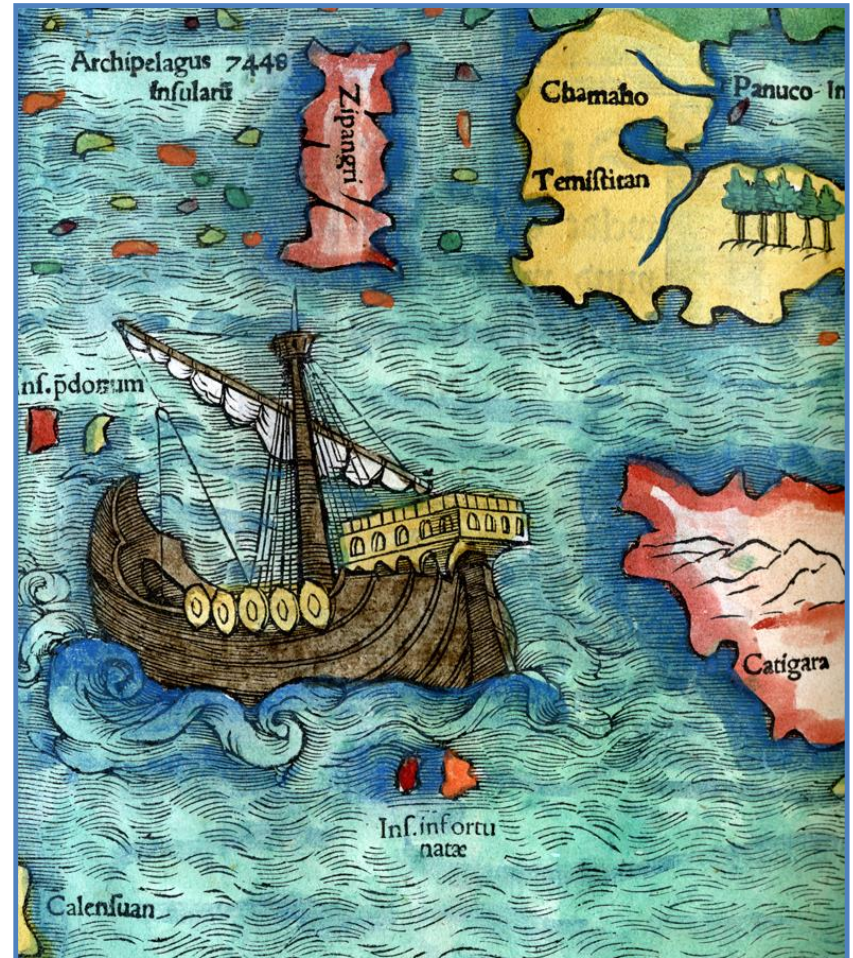 Archipelagus 7448
inſularũ
Zipangri
Chamaho
Panuco In
Temiſtitan
Inſ. p̄donum
Catigara
Inſ. infortu
natæ
Calenſuan